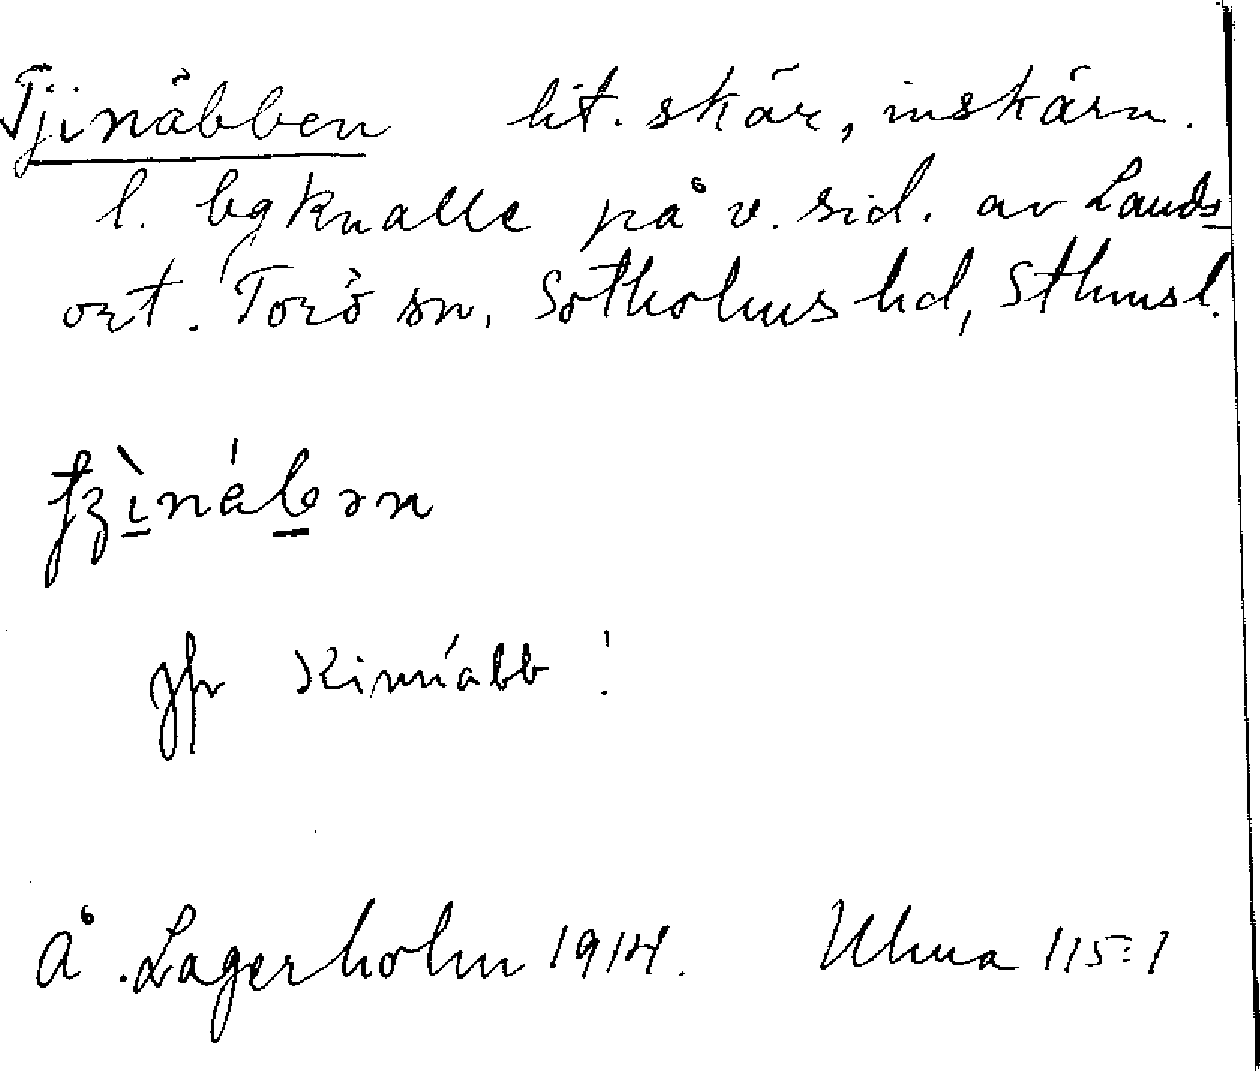 Tjinäbben lit. skär, inskärn.
l. bgknalle på v. sid. av Lands-
ort. Torö sn, Sotholms hd, Sthmsl.
jfr Kinnabb !
Å. Lagerholm 1914. Ulma 115:1